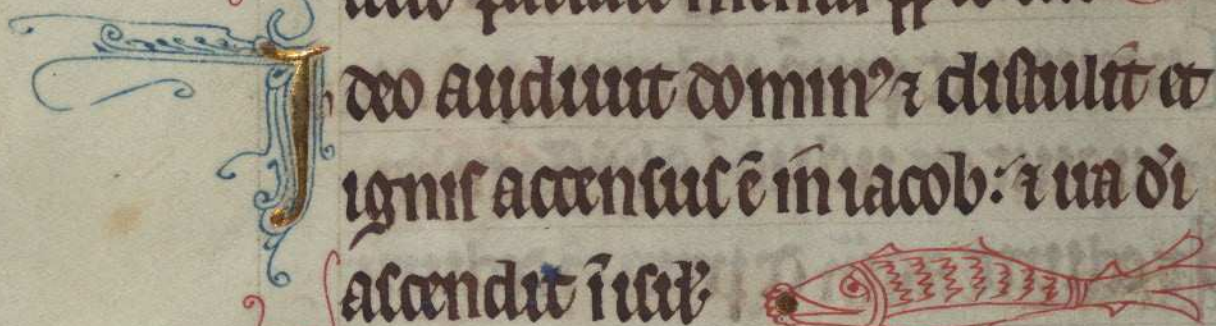 Ideo audiuit domin⁹ ⁊ distulit et
ignis accensus ē in iacob: ⁊ ira dı̃
ascendit ı̄ isrł